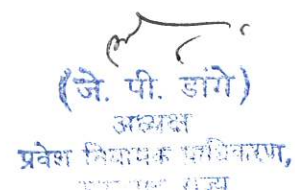 (जे. पी. डांगे)
अध्यक्ष
प्रवेश नियामक प्राधिकरण,
राज्य